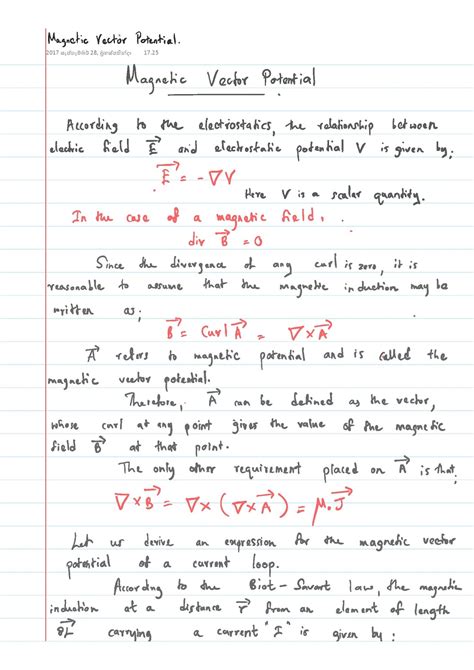 Magnetic Vector Potential.
2017 සැප්තැම්බර් 28, බ්‍රහස්පතින්දා 17.25
Magnetic Vector Potential
According to the electrostatics, the relationship between
electric field E⃗ and electrostatic potential V is given by;
E⃗ = -∇V
Here V is a scalar quantity.
In the case of a magnetic field,
div B⃗ = 0
Since the divergence of any curl is zero, it is
reasonable to assume that the magnetic induction may be
written as;
B⃗ = Curl A⃗ = ∇×A⃗
A⃗ refers to magnetic potential and is called the
magnetic vector potential.
Therefore, A⃗ can be defined as the vector,
whose curl at any point gives the value of the magnetic
field B⃗ at that point.
The only other requirement placed on A⃗ is that;
∇×B⃗ = ∇×(∇×A⃗) = μ₀J⃗
Let us derive an expression for the magnetic vector
potential of a current loop.
According to the Biot-Savart law, the magnetic
induction at a distance r⃗ from an element of length
δl carrying a current "I" is given by: